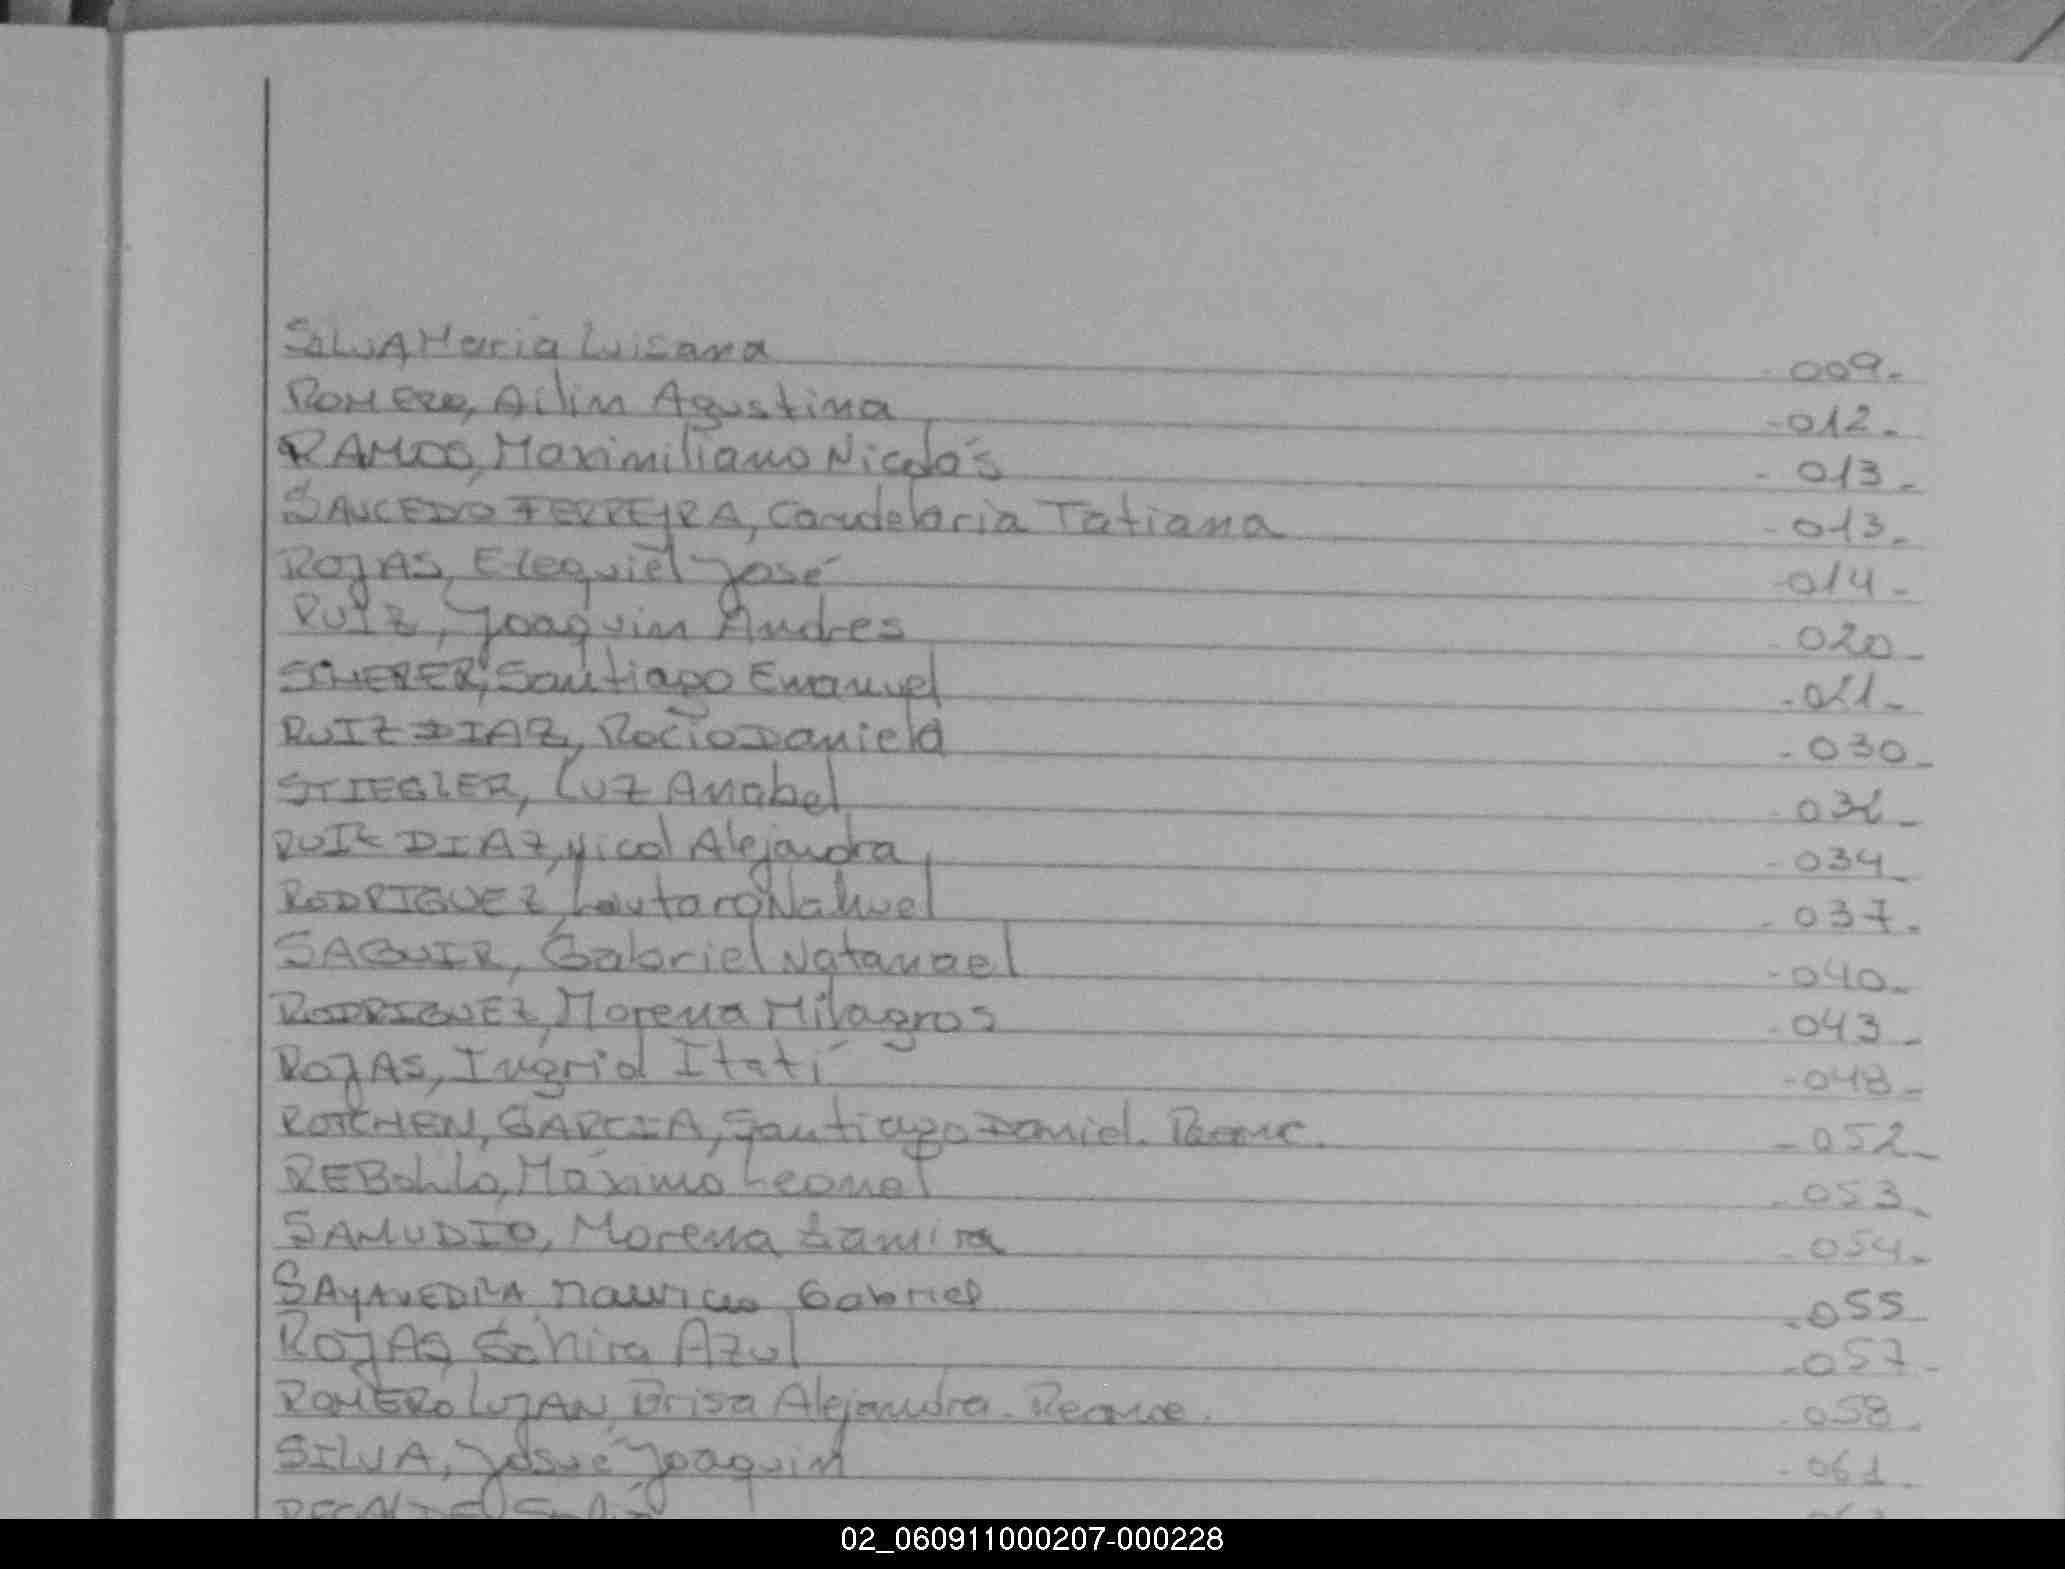 SILVA Maria Luisana - 009-
ROMERO, Ailin Agustina - 012-
RAMOS, Maximiliano Nicolás - 013-
SAUCEDO FERREYRA, Candelaria Tatiana - 013-
ROJAS, Ezequiel José - 014-
RUIZ, Joaquin Andres - 020-
SCHERER, Santiago Emanuel - 021-
RUIZ DIAZ, Rocio Daniela - 030-
STIEGLER, Luz Anabel -
RUIZ DIAZ, Nicol Alejandra - 034-
RODRIGUEZ, Lautaro Nahuel - 037-
SAGUIR, Gabriel Natanael - 040-
RODRIGUEZ, Morena Milagros - 043-
ROJAS, Ingrid Itatí - 048-
GARCIA, Santiago Daniel. - 052-
REBOLLO, Máximo Leonel - 053-
SAMUDIO, Morena - 054-
SAYAVEDRA, Mauricio Gabriel - 055-
ROJAS, Azul - 057-
ROMERO LUJAN, Brisa Alejandra - 058-
SILVA, Josué Joaquin - 061-
02_060911000207-000228